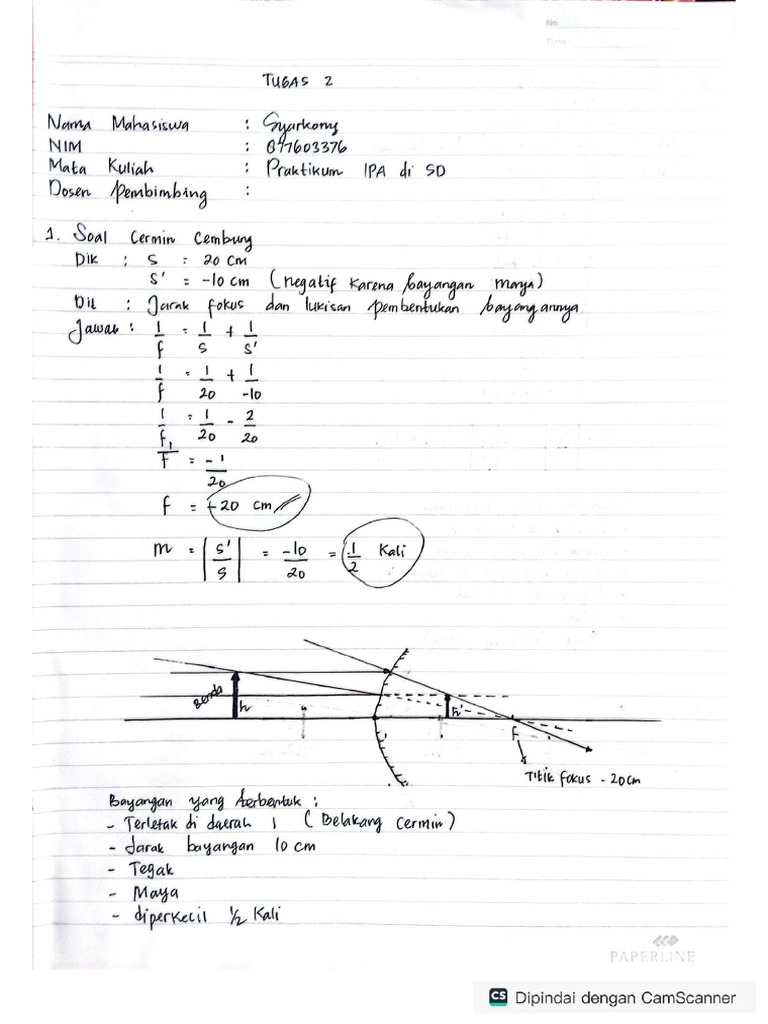 No.
Date :
TUGAS 2
Nama Mahasiswa : Syarkony
NIM : 877603376
Mata Kuliah : Praktikum IPA di SD
Dosen Pembimbing :
1. Soal Cermin Cembung
Dik : S : 20 cm
S' = -10 cm (negatif karena bayangan maya)
Dit : Jarak fokus dan lukisan pembentukan bayangannya
Jawab : 1/f = 1/S + 1/S'
1/f = 1/20 + 1/-10
1/f = 1/20 - 2/20
1/F = -1/20
f = -20 cm
m = |S'/S| = -10/20 = 1/2 Kali
Benda
h
h'
f
Titik fokus - 20 cm
Bayangan yang terbentuk :
- Terletak di daerah 1 (Belakang cermin)
- Jarak bayangan 10 cm
- Tegak
- Maya
- diperkecil 1/2 Kali
PAPERLINE
CS Dipindai dengan CamScanner